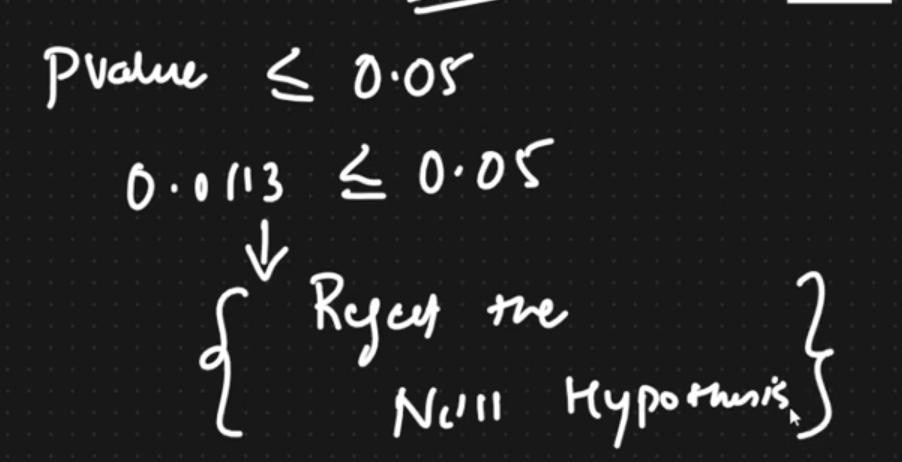 Pvalue ≤ 0.05
0.0113 ≤ 0.05
↓
{ Reject the }
Null Hypothesis